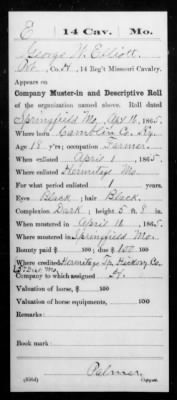 E 14 Cav. Mo.
George W. Elliott
Pvt., Co. H, 14 Reg't Missouri Cavalry.
Appears on
Company Muster-in and Descriptive Roll
of the organization named above. Roll dated
Springfield Mo, Apr 16, 1865.
Where born Camblin Co. Ky.
Age 18 y'rs; occupation Farmer.
When enlisted April 1, 1865.
Where enlisted Hermitage Mo.
For what period enlisted 1 years.
Eyes Black; hair Black.
Complexion Dark; height 5 ft. 8 in.
When mustered in April 16, 1865.
Where mustered in Springfield Mo.
Bounty paid $ 100; due $ 100 100
Where credited Hermitage Tp. Hickory Co.
Mo.
Company to which assigned H.
Valuation of horse, $ 100
Valuation of horse equipments, $ 100
Remarks:
Book mark:
Palmer
(356d) Copyist.